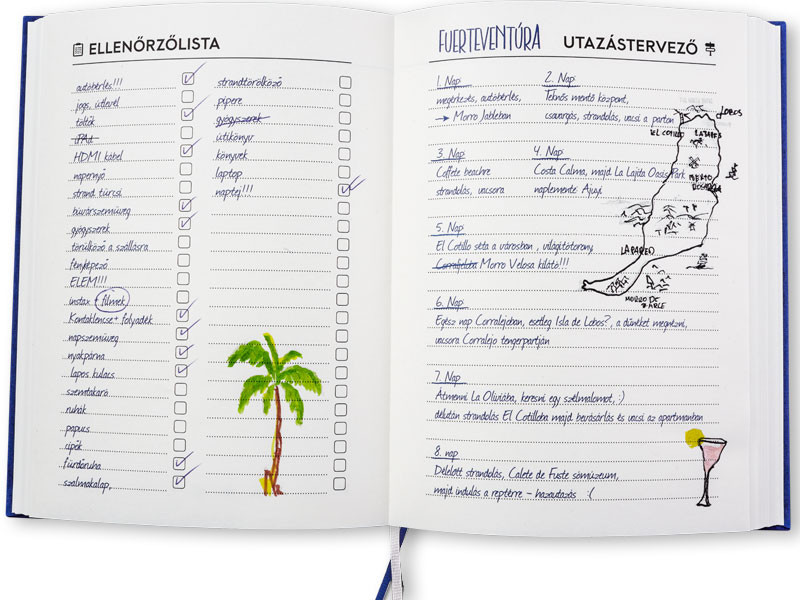 ELLENŐRZŐLISTA
autóbérlés!!!
jogsi, útlevél
töltők
iPAd
HDMI kábel
napernyő
strand türcsi
búvárszemüveg
gyógyszerek
törülköző a szállásra
fényképező
ELEM!!!
instax + filmek
Kontaktlencse + folyadék
napszemüveg
nyakpárna
lapos kulacs
szemtakaró
ruhák
papucs
cipők
fürdőruha
szalmakalap,
strandtörölköző
pipere
gyógyszerek
útikönyv
könyvek
laptop
naptej!!!
FUERTEVENTÚRA UTAZÁSTERVEZŐ
1. Nap
megérkezés, autóbérlés,
→ Morro Jableben
2. Nap
Teknős mentő központ,
csavargás, strandolás, vacsi a parton
3. Nap
Coffete beachre
strandolás, vacsora
4. Nap
Costa Calma, majd La Lajita Oasis Park
naplemente Ajuy
5. Nap
El Cotillo séta a városban, világítótorony,
Corralejoba Morro Velosa kilátó!!!
6. Nap
Egész nap Corralejoban, esetleg Isla de Lobos?, a dűnéket megnézni,
vacsora Corralejo tengerpartján
7. Nap
Átmenni La Olivaba, keresni egy szélmalomot, :)
délután strandolás El Cotilloba majd bevásárlás és vacsi az apartmanban
8. nap
Délelőtt strandolás, Calete de Fuste sómúzeum,
majd indulás a reptérre - hazautazás :(
LOBOS
EL COTILLO
LAJARES
PUERTO
ROSARIO
LA PARED
MORRO DE
JABLE